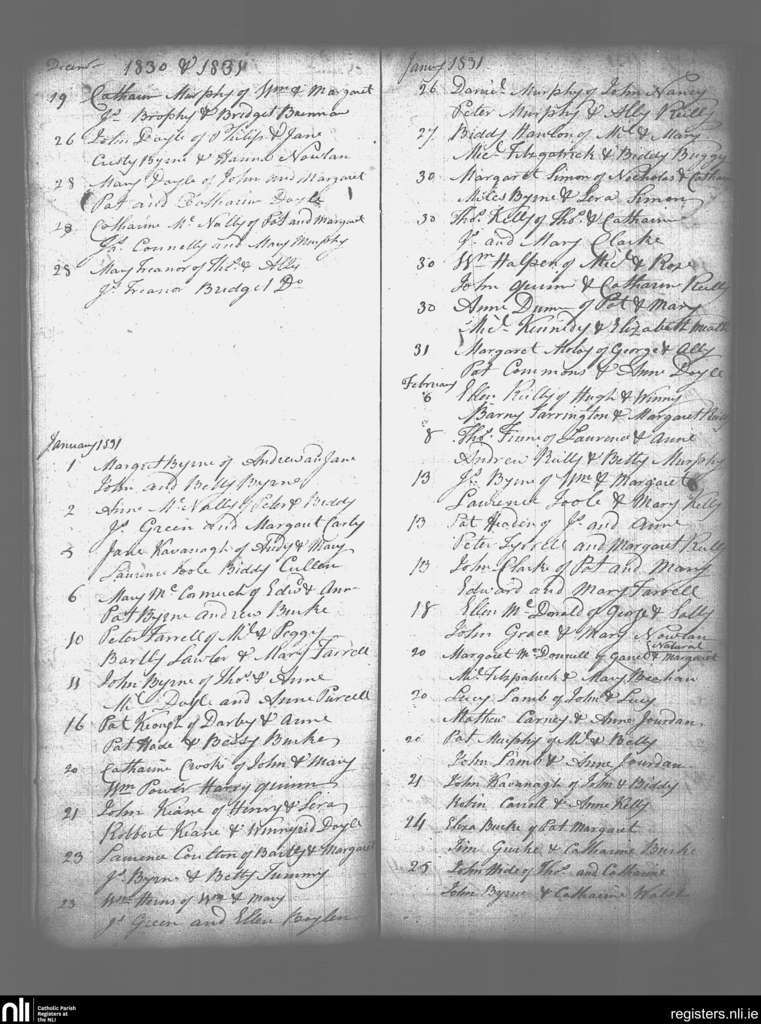 Decemr 1830 & 1831
19 Catharin Murphy of Wm & Margaret
Js. Brophy & Bridget Brennan
26 John Doyle of Philip & Jane
Cully Byrne & Hanna Nowlan
28 Mary Doyle of John and Margaret
Pat and Catharine Doyle
28 Catharine Mc Nally of Pat and Margaret
Js. Connelly and Mary Murphy
28 Mary Treanor of Thos. & Ally
Js. Treanor Bridget Do
January 1831
1 Margret Byrne of Andrew and Jane
John and Betty Byrne
2 Anne Mc Nally of Peter & Biddy
Js. Green and Margaret Carty
5 Jane Kavanagh of Andy & Mary
Laurence Toole Biddy Cullen
6 Mary Mc Cormick of Edwd & Ann
Pat Byrne andrew Burke
10 Peter Farrell of Ml & Peggy
Bartly Lawler & Mary Farrell
11 John Byrne of Thos. & Anne
Ml. Doyle and Anne Purcell
16 Pat Keough of Darby & Anne
Pat Hade & Betsy Burke
20 Catharine Crook of John & Mary
Wm Power Harry Quinn
21 John Keane of Henry & Lera
Robbert Keane & Winnyfred Doyle
23 Laurence Coulton of Bartly & Margaret
Js. Byrne & Betty Tummy
23 Wm Horns of Wm & Mary
Js. Green and Ellen Boylen
Janury 1831
26 Daniel Murphy of John Nancy
Peter Murphy & Ally Reilly
27 Biddy Nowlon of Ml. & Mary
Micl Fitzpatrick & Biddy Buggy
30 Margaret Simon of Nicholas & Catharin
Miles Byrne & Lera Simon
30 Thos. Kelly of Thos. & Catharin
Js. and Mary Clarke
30 Wm Halpen of Micl & Rose
John Quinn & Catharin Reilly
30 Anne Dunn of Pat & Mary
Micl. Kennedy & Elizabeth
31 Margaret of George & Ally
Pat Commons & Anne Doyle
February
6 Ellen Reilly of Hugh & Winny
Barny Farrington & Margaret Reilly
8 Thos. Finne of Laurence & Anne
Andrew Reilly & Betty Murphy
13 Js. Byrne of Wm & Margaret
Laurence Toole & Mary Kelly
13 Pat Headen of Js. and Anne
Peter Tyrrell and Margaret Reilly
13 John Clarke of Pat and Mary
Edward and Mary Farrell
18 Ellen Mc Donald of George & Sally
John Grace & Mary Nowlan
20 Margaret Mc Donnell of & Margaret
Natural
Ml. Fitzpatrick & Mary Beehan
20 Lucy Lamb of John & Lucy
Mathew Carney & Anne Jourdan
20 Pat Murphy of Ml & Betty
John Lamb & Anne Jourdan
21 John Kavanagh of John & Biddy
Robin Carroll & Anne Kelly
24 Elera Burke of Pat Margaret
& Catharine Burke
25 John Wide of Thos. and Catharine
John Byrne & Catharine Walsh
nli
Catholic Parish
Registers at
the NLI
registers.nli.ie